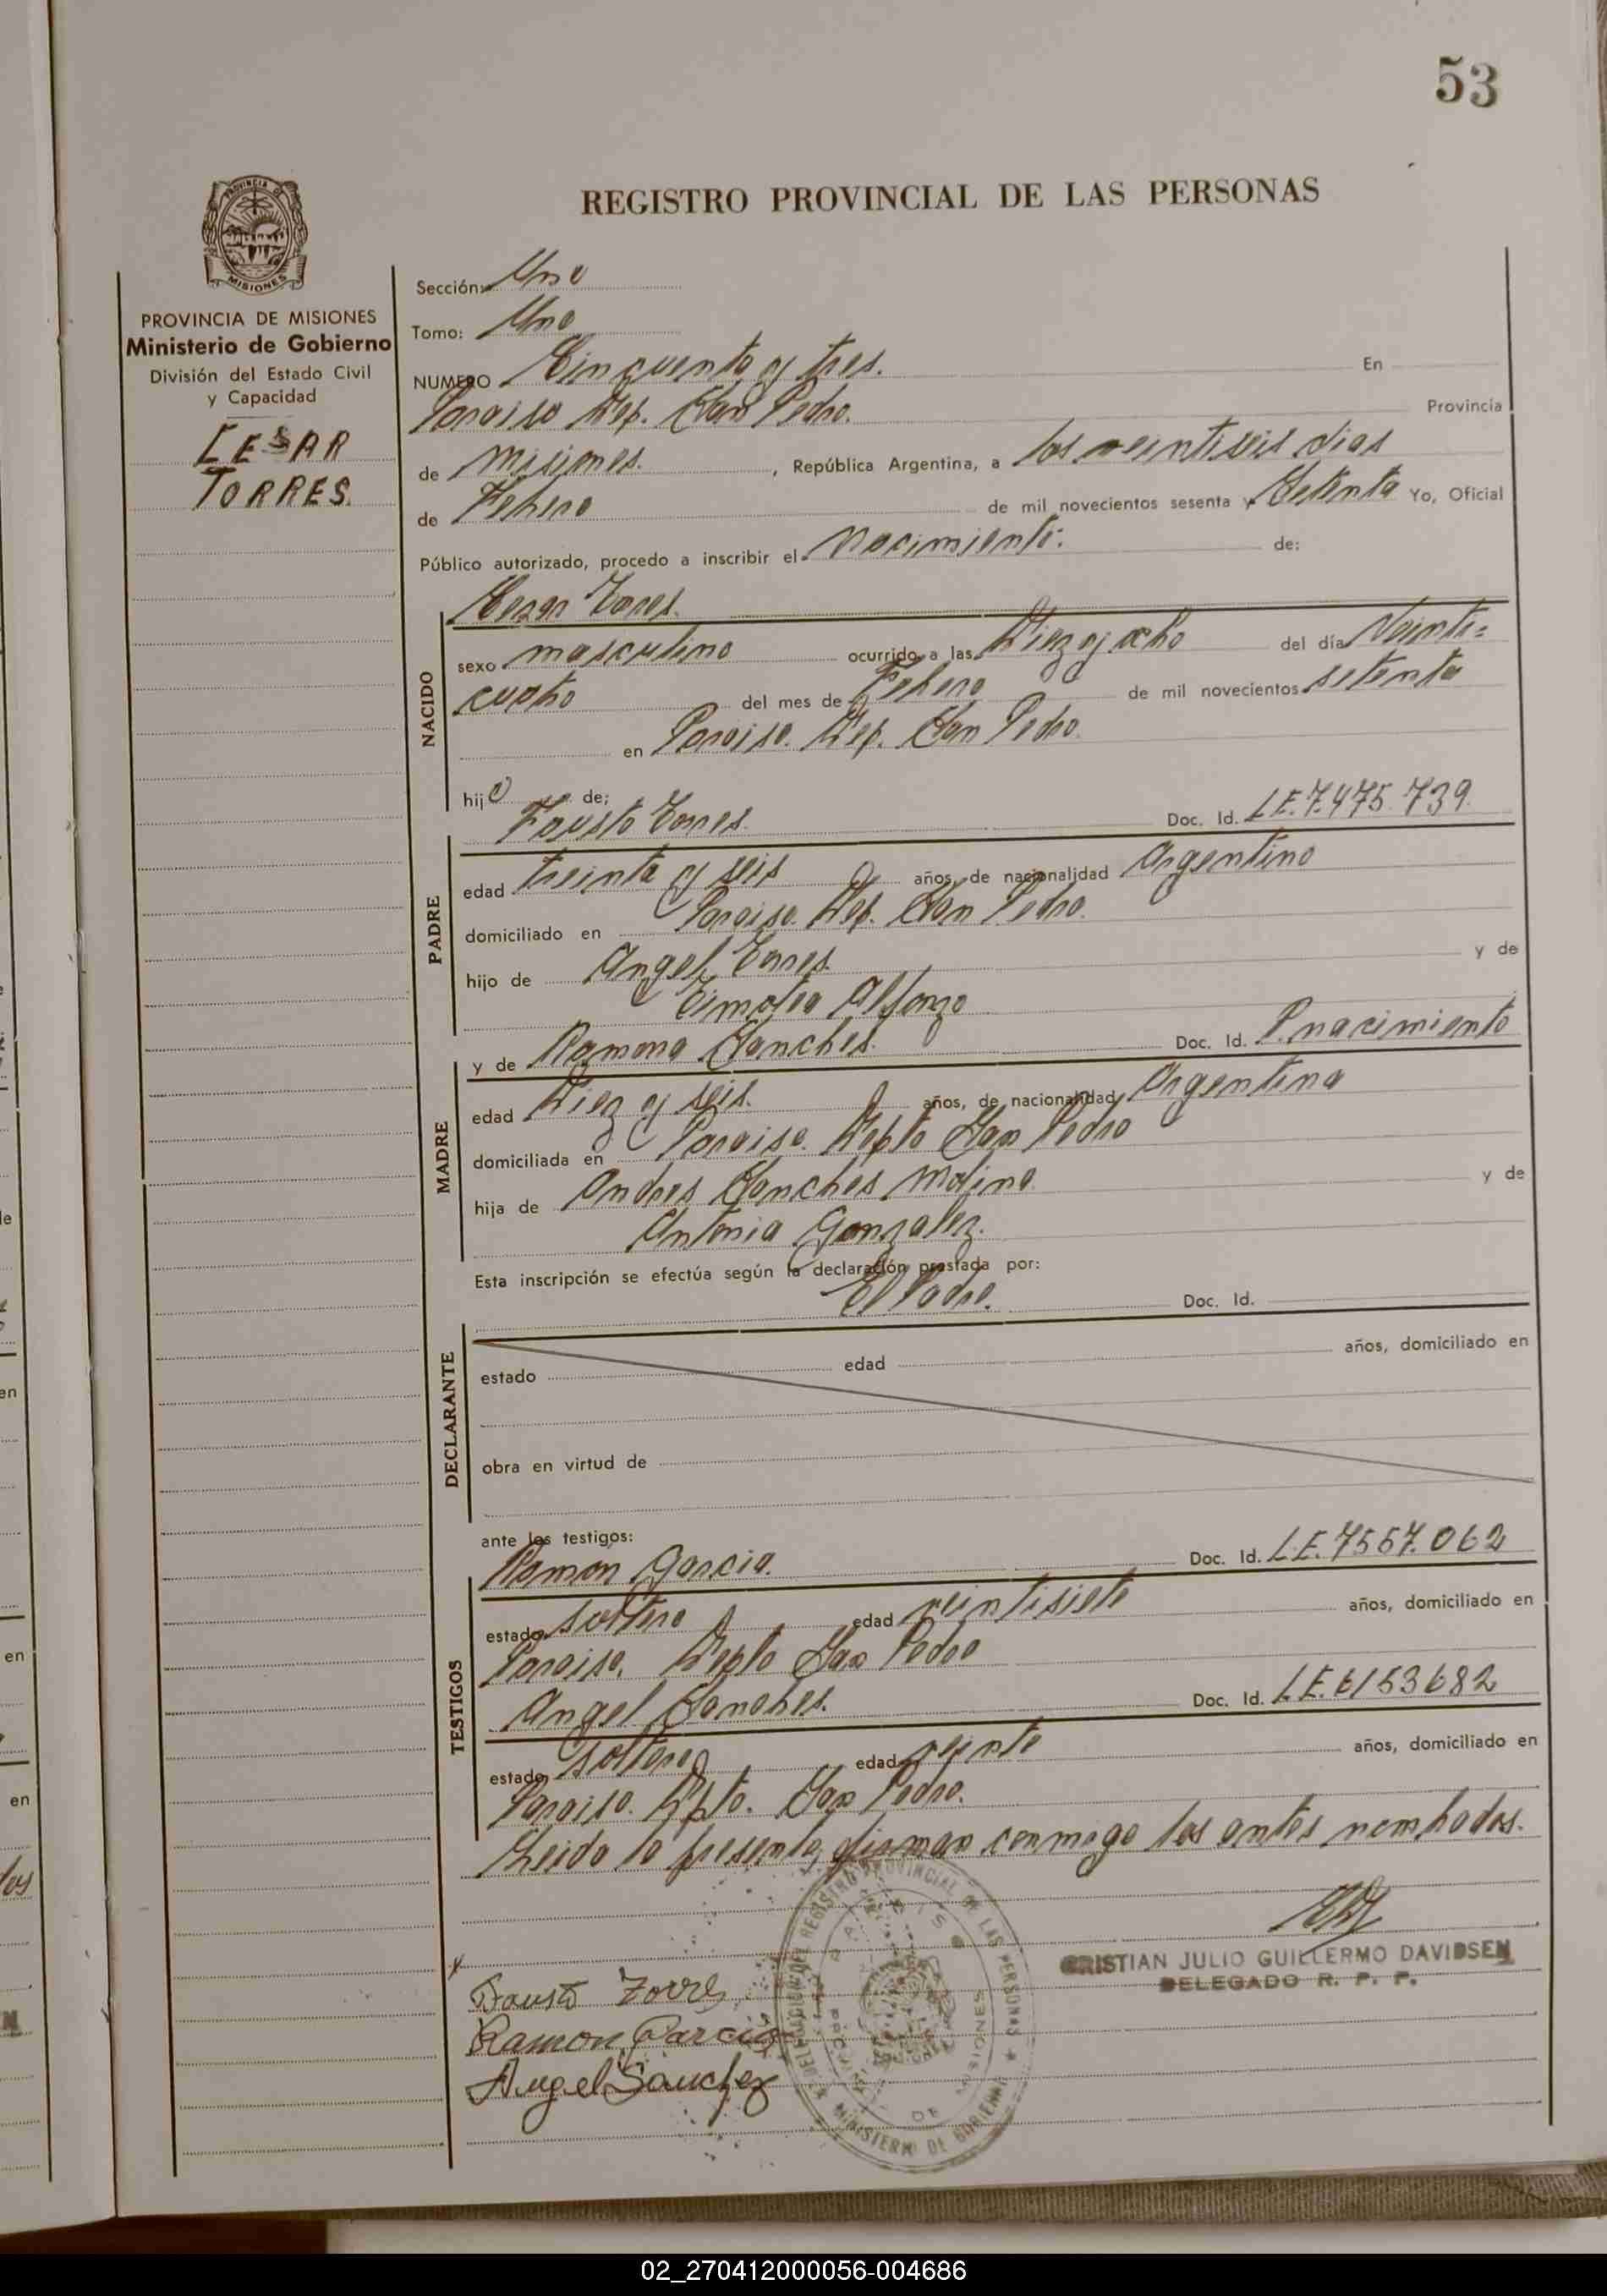 53
REGISTRO PROVINCIAL DE LAS PERSONAS
PROVINCIA DE MISIONES
Ministerio de Gobierno
División del Estado Civil
y Capacidad
CESAR
TORRES.
Sección: Uno
Tomo: Uno
NUMERO Cincuenta y tres. En
Paraiso Dep. San Pedro. Provincia
de Misiones. , República Argentina, a los veintiseis dias
de Febrero de mil novecientos sesenta y Setenta Yo, Oficial
Público autorizado, procedo a inscribir el Nacimiento: de:
Cesar Torres.
NACIDO
sexo masculino ocurrido a las Diez y ocho del día Veinti=
cuatro del mes de Febrero de mil novecientos setenta
en Paraiso. Dep. San Pedro.
hijo de;
Fausto Torres. Doc. Id. L.E. 7.475.739.
PADRE
edad treinta y seis años, de nacionalidad Argentino
domiciliado en Paraiso. Dep. San Pedro.
hijo de Angel Torres. y de
Timotea Alfonzo
y de Ramona Sanches. Doc. Id. P. nacimiento
MADRE
edad Diez y seis. años, de nacionalidad Argentina
domiciliada en Paraiso. Depto San Pedro
hija de Andres Sanches Molina. y de
Antonia Gonzalez.
Esta inscripción se efectúa según la declaración prestada por:
El Padre. Doc. Id.
DECLARANTE
estado edad años, domiciliado en
obra en virtud de
ante los testigos:
Ramon Garcia. Doc. Id. L.E. 7567.062
TESTIGOS
estado soltero edad veintisiete años, domiciliado en
Paraiso, Depto San Pedro
Angel Sanches. Doc. Id. L.E. 6153682
estado soltero edad veinte años, domiciliado en
Paraiso. Dpto. San Pedro.
Leido la presente, firman conmigo los antes nombrados.
CRISTIAN JULIO GUILLERMO DAVIDSEN
DELEGADO R. P. P.
Fausto Torres
Ramon Garcia
Angel Sanchez
02_270412000056-004686